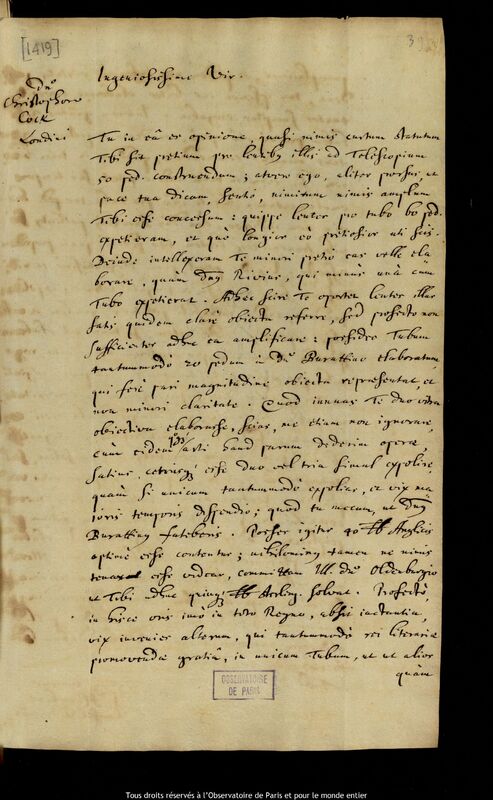 [1419]
39
Dno
Christophoro
Cock
Londini
Ingeniosissime Vir.
Tu in eâ es opinione, quasi nimis curtum statutum
Tibi sit pretium pro lentibus illis ad Telescopium
50 ped. construendum; atvero ego, aliter prorsus, ut
pace tua dicam, sentio, nimirum nimis amplum
Tibi esse concessum: quippe lentes pro tubo 60 ped.
expetieram, et quò longior eò pretiosior uti scis.
Deinde intellexeram Te minori pretio eas velle ela
borare, quàm Dnus Rivius, qui minus unà cum
Tubo expetierat. Adhæc scire Te oportet lentes illas
satis quidem clarè obiecta referre, sed profecto non
sufficienter adhuc ea amplificare: possideo Tubum
tantummodò 20 pedum à Dno Burattino elaboratum,
qui ferè pari magnitudine obiecta repræsentat, et
non minori claritate. Quod innuas Te duo vitra
obiectiva elaborasse, scias, me etiam non ignorare,
cùm eidem arti haud parum dederim operæ
satius, esse duo vel tria simul expolire,
quàm si unicum tantummodò expolias, et vix ma
ioris temporis dispendio; quod tu mecum, ut Dnus
Burattinus fateberis. Posses igitur 40 ℔ Anglicis
optimè esse contentus; nihilominus tamen ne nimis
tenax esse videar, committam Ill. Dno Oldenburgio
ut Tibi adhuc quinque ℔ Sterling. solvat. Profectò,
in hisce oris imò in toto Regno, absit iactantia,
vix invenies alterum, qui tantummodò rei literariæ
promovendæ gratiâ, in unicum Tubum, ut ut alios
quàm
OBSERVATOIRE
DE PARIS
Tous droits réservés à l'Observatoire de Paris et pour le monde entier